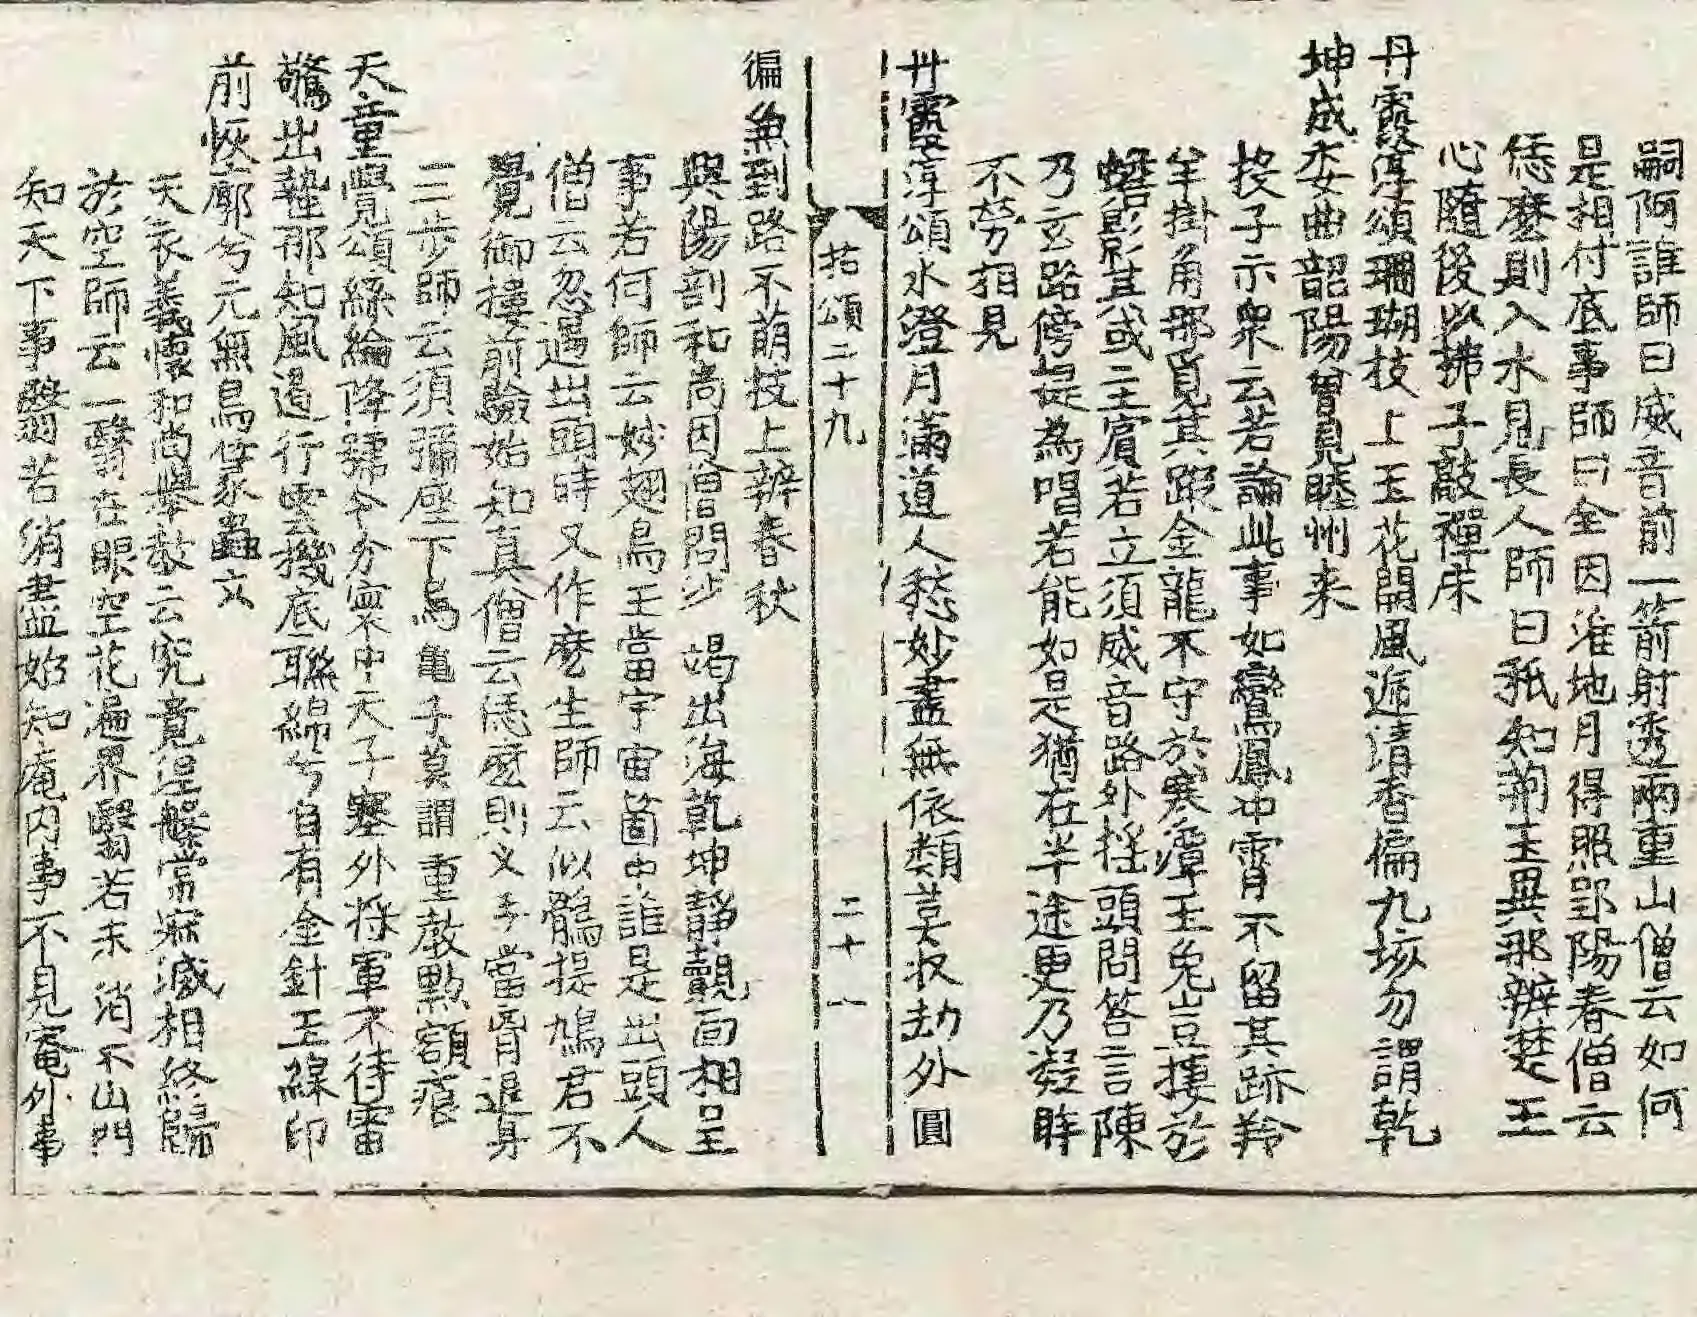 嗣阿誰師曰威音前一箭射透兩重山僧云如何
是相付底事師曰全因淮地月得照郢陽春僧云
恁麽則入水見長人師曰秖知荊玉異那辨楚王
心隨後以拂子敲禪床
丹霞淳頌珊瑚枝上玉花開風遞清香徧九垓勿謂乾
坤成委曲韶陽曾見睦州来
投子示衆云若論此事如鸞鳳冲霄不留其跡羚
羊掛角那覓其蹤金龍不守於寒潭玉兔豈摟於
蟾影其或主賔若立須威音路外摇頭問答言陳
乃玄路傍提為唱若能如是猶在半途更乃凝眸
不劳相見
丹霞淳頌水澄月滿道人愁妙盡無依類莫収劫外圓
拈頌二十九
二十八
徧無到路不萌技上辨春秋
興陽剖和尚因僧問沙竭出海乾坤静覿面相呈
事若何師云妙翅鳥王當宇宙箇中誰是出頭人
僧云忽遇出頭時又作麽生師云似鶻提鳩君不
覺御樓前驗始知真僧云恁麽則义手當胷退身
三步師云須彌座下烏亀子莫謂重教點額痕
天童覺頌絲綸降號令分寰中天子塞外将軍不待雷
驚出蟄那知風遏行雲機底聯綿兮自有金針玉線印
前恢廓兮元無鳥篆蟲文
天衣義懐和尚舉教云究竟涅槃常寂滅相終歸
於空師云一翳在眼空花遍界翳若未消不出門
知天下事翳若消盡始知庵内事不見庵外事